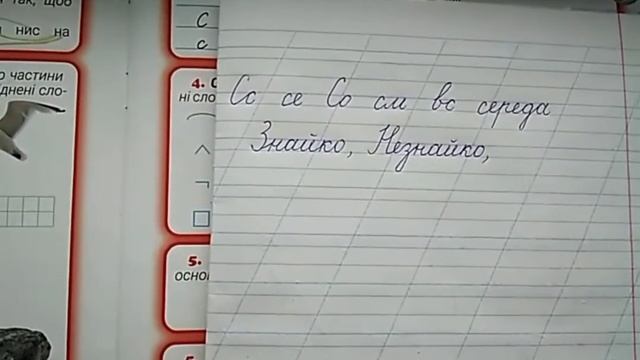 так, щоб
нис на
о частини
днені сло-
С
с
4. С
ні сло
5.
основ
Сс се Со см вс середа
Знайко, Незнайко,